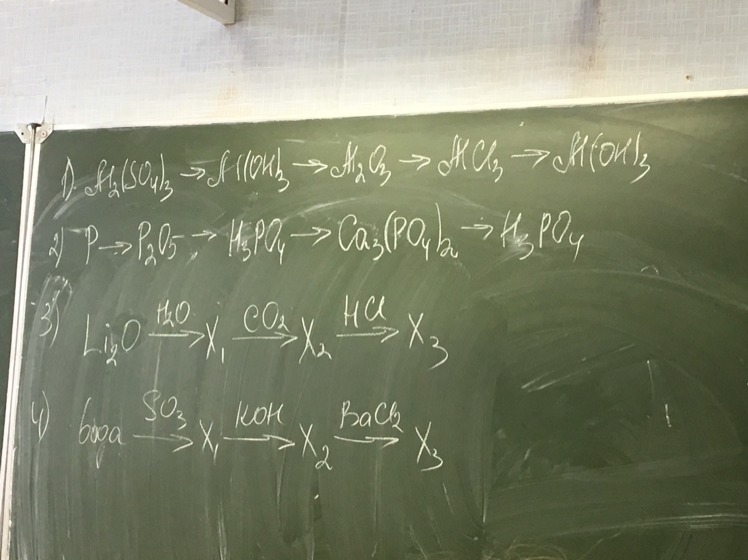 1). Al₂(SO₄)₃ → Al(OH)₃ → Al₂O₃ → AlCl₃ → Al(OH)₃
2) P → P₂O₅ → H₃PO₄ → Ca₃(PO₄)₂ → H₃PO₄
3) Li₂O —H₂O→ X₁ —CO₂→ X₂ —HCl→ X₃
4) вода —SO₃→ X₁ —KOH→ X₂ —BaCl₂→ X₃